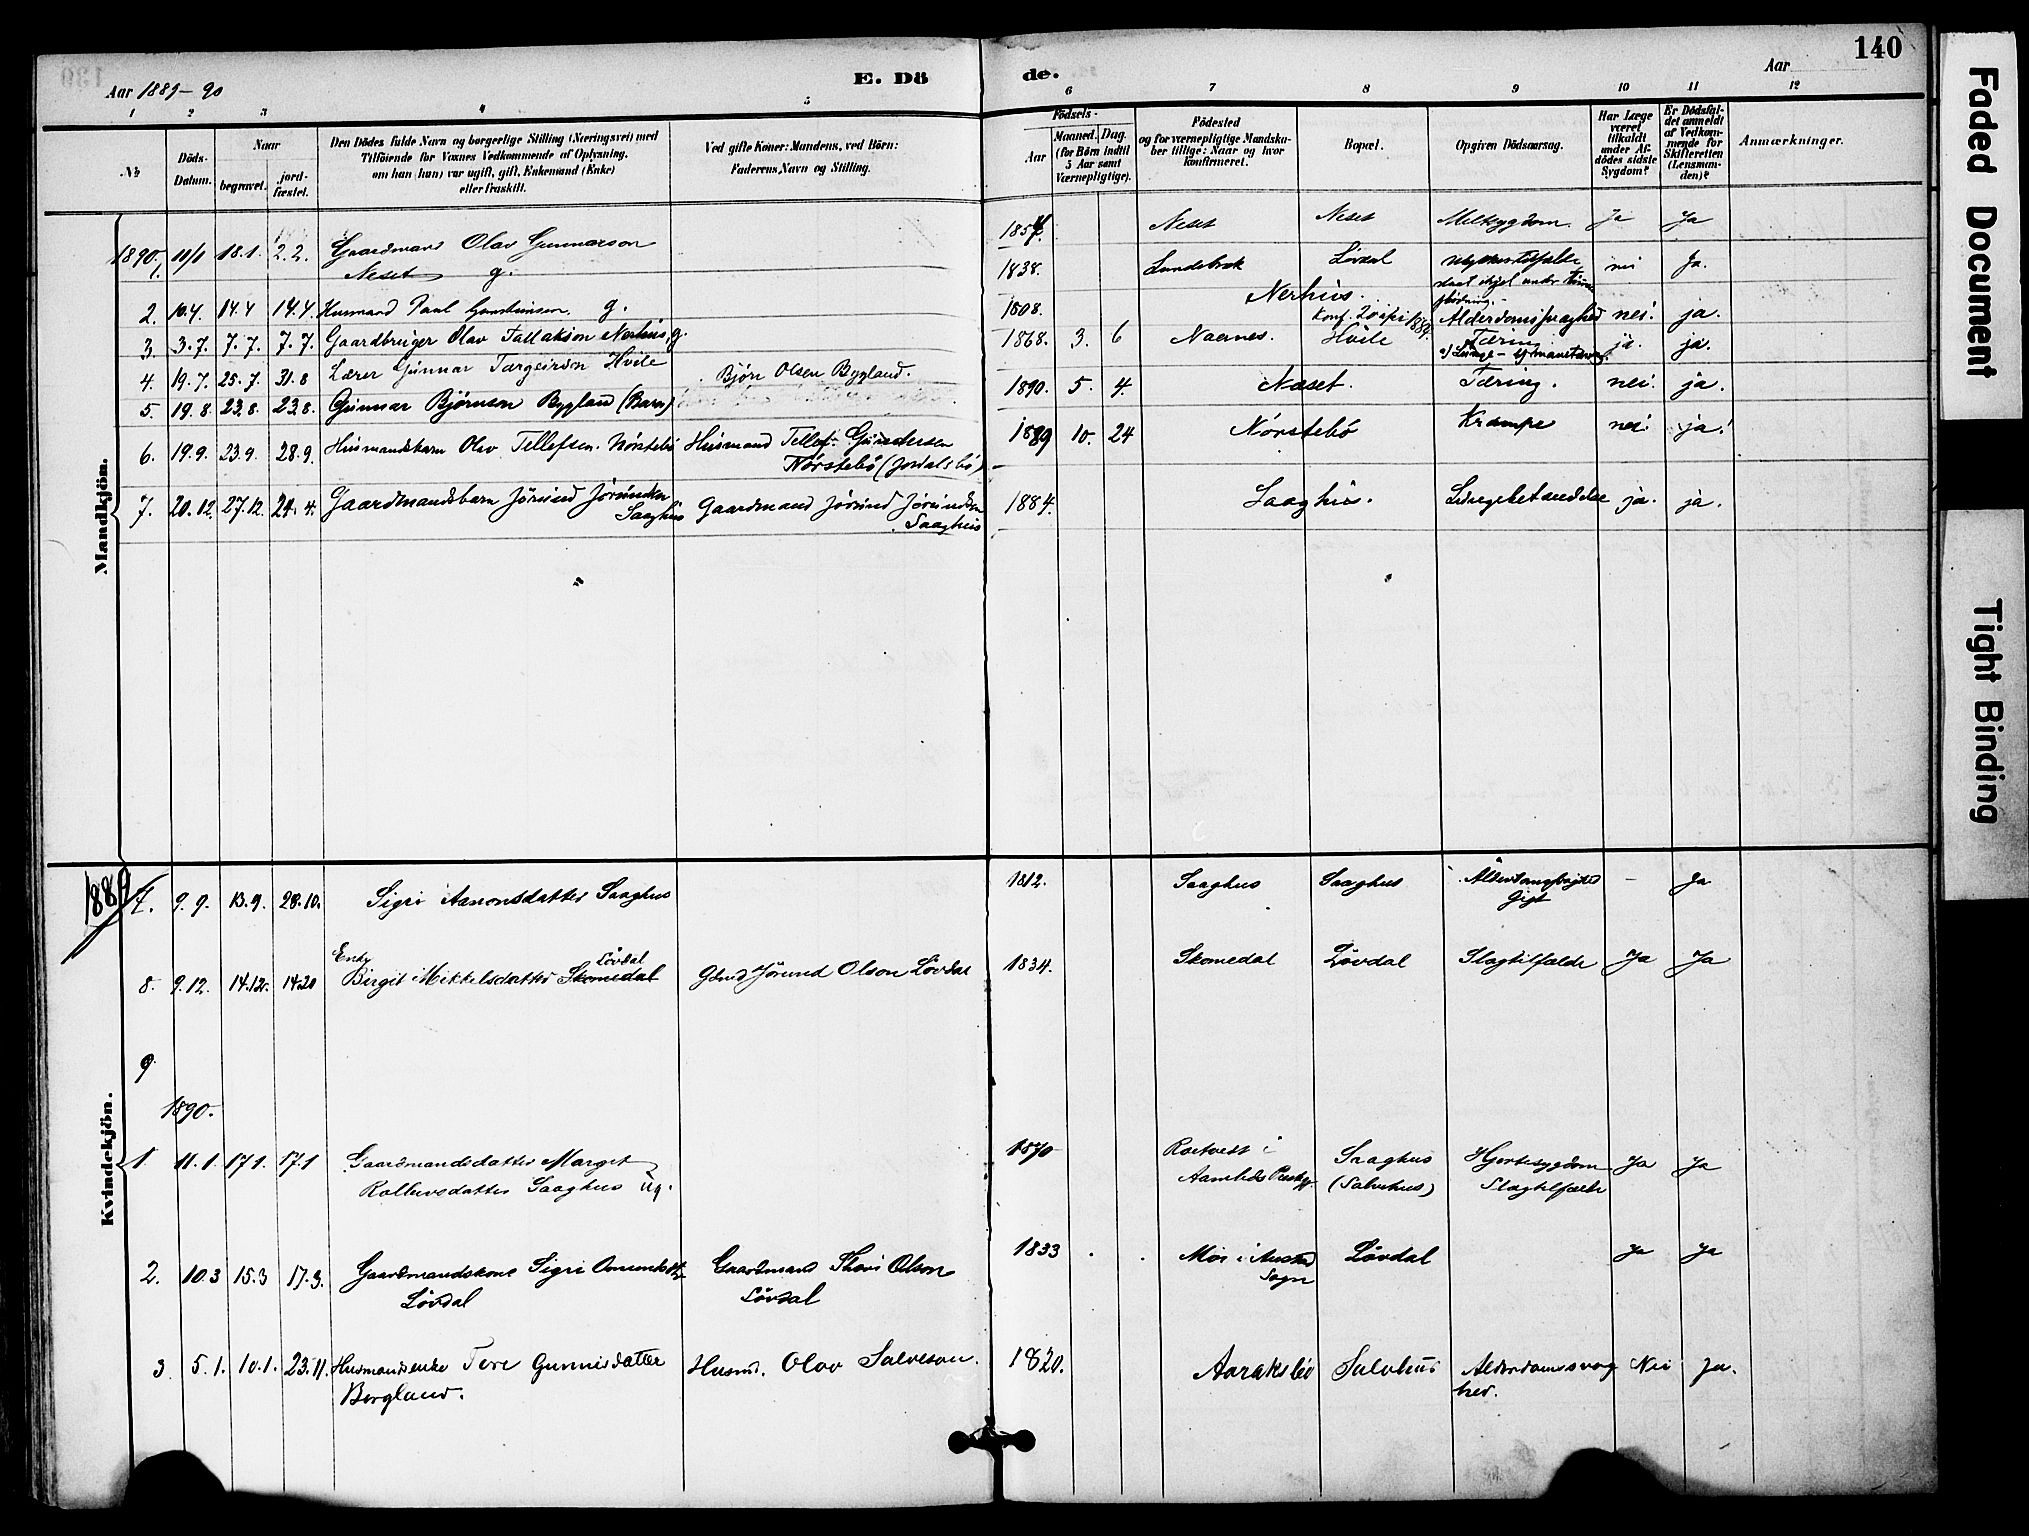 140
Aar 1889-90
E. Dö
de.
Aar
1 2 3 4 5
6 7 8 9 10 11 12
No
Döds-Datum.
Naar
begravet.
jord-fæstet.
Den Dödes fulde Navn og borgerlige Stilling (Næringsvei) med
Tilföiende for Voxnes Vedkommende af Oplysning,
om han (hun) var ugift, gift, Enkemand (Enke)
eller fraskilt.
Ved gifte Koner: Mandens, ved Börn:
Faderens Navn og Stilling.
Födsels-
Aar
Maaned. Dag.
(for Börn indtil
5 Aar samt
Værnepligtige).
Födested
og for værnepligtige Mandska-
ber tillige: Naar og hvor
konfirmeret.
Bopæl.
Opgiven Dödsaarsag.
Har Læge
været
tilkaldt
under Af-
dödes sidste
Sygdom?
Er Dödsfal-
det anmeldt
af Vedkom-
mende for
Skifteretten
(Lensman-
den)?
Anmærkninger.
Mandkjön.
1890. 1. 11/1 18.1. 2.2. Gaardmand Olav Gunnarson
Neset g.
Neset Neset Ja Ja
2. 10.4. 14.4 14.4. Husmand Paul g.
1838. Lundebræk Lövdal nei Ja.
3. 3.7. 7.7. 7.7. Gaardbruger Olav Tallakson Nerhus, g.
1808. Nerhus. Alderdomssvaghed nei. ja.
4. 19.7. 25.7. 31.8 Lærer Gunnar Targeirson Hvile
1868. 3. 6 Naernes. Konf. Hvile Tæring ja. ja.
5. 19.8. 23.8. 23.8. Gunnar Björnson Bygland (Barn) Björn Olsen Bygland.
1890. 5. 4. Næset. Tæring. nei. ja.
6. 19.9. 23.9. 28.9. Husmandsbarn Olav Tellefsen. Nörstebö Husmand Tellef Gundersen
Nörstebö (Jordalsbö)
1889 10. 24 Nörstebö Krampe nei ja.
7. 20.12. 27.12. 24.4. Gaardmandsbarn Jörund Jörundsen
Saaghus Gaardmand Jörund Jörundsen
Saaghus
1884. Saaghus. Lungebetændelse ja. ja.
1889
Kvindekjön.
7. 9.9. 13.9. 28.10. Sigri Aanonsdatter Saaghus
1812. Saaghus Saaghus Gigt - Ja
Enke Lövdal
8. 9.12. 14.12. 14.20 Birgit Mikkelsdatter Skomedal Gdmd Jörund Olson Lövdal
1834. Skomedal Lövdal Slagtilfælde Ja Ja
9
1890.
1. 11.1. 17.1. 17.1 Gaardmandsdatter Marget
Rollevsdatter Saaghus ug.
1870 i
Aamlids Præstgj. Saaghus
(Salvehus) Hjertesygdom
Slagtilfælde Ja Ja
2. 10.3 15.3 17.3. Gaardmandskone Sigri
Lövdal Gaardmand Olson
Lövdal
1833 Mos i
Sogn Lövdal Ja Ja
3. 5.1. 10.1. 23.11. Husmandsenke Tore Gunnisdatter
Bergland. Husmd. Olav Salveson.
1820. Aaraksbö Salvehus Alderdomssvag
hed. Nei Ja.
Faded Document
Tight Binding